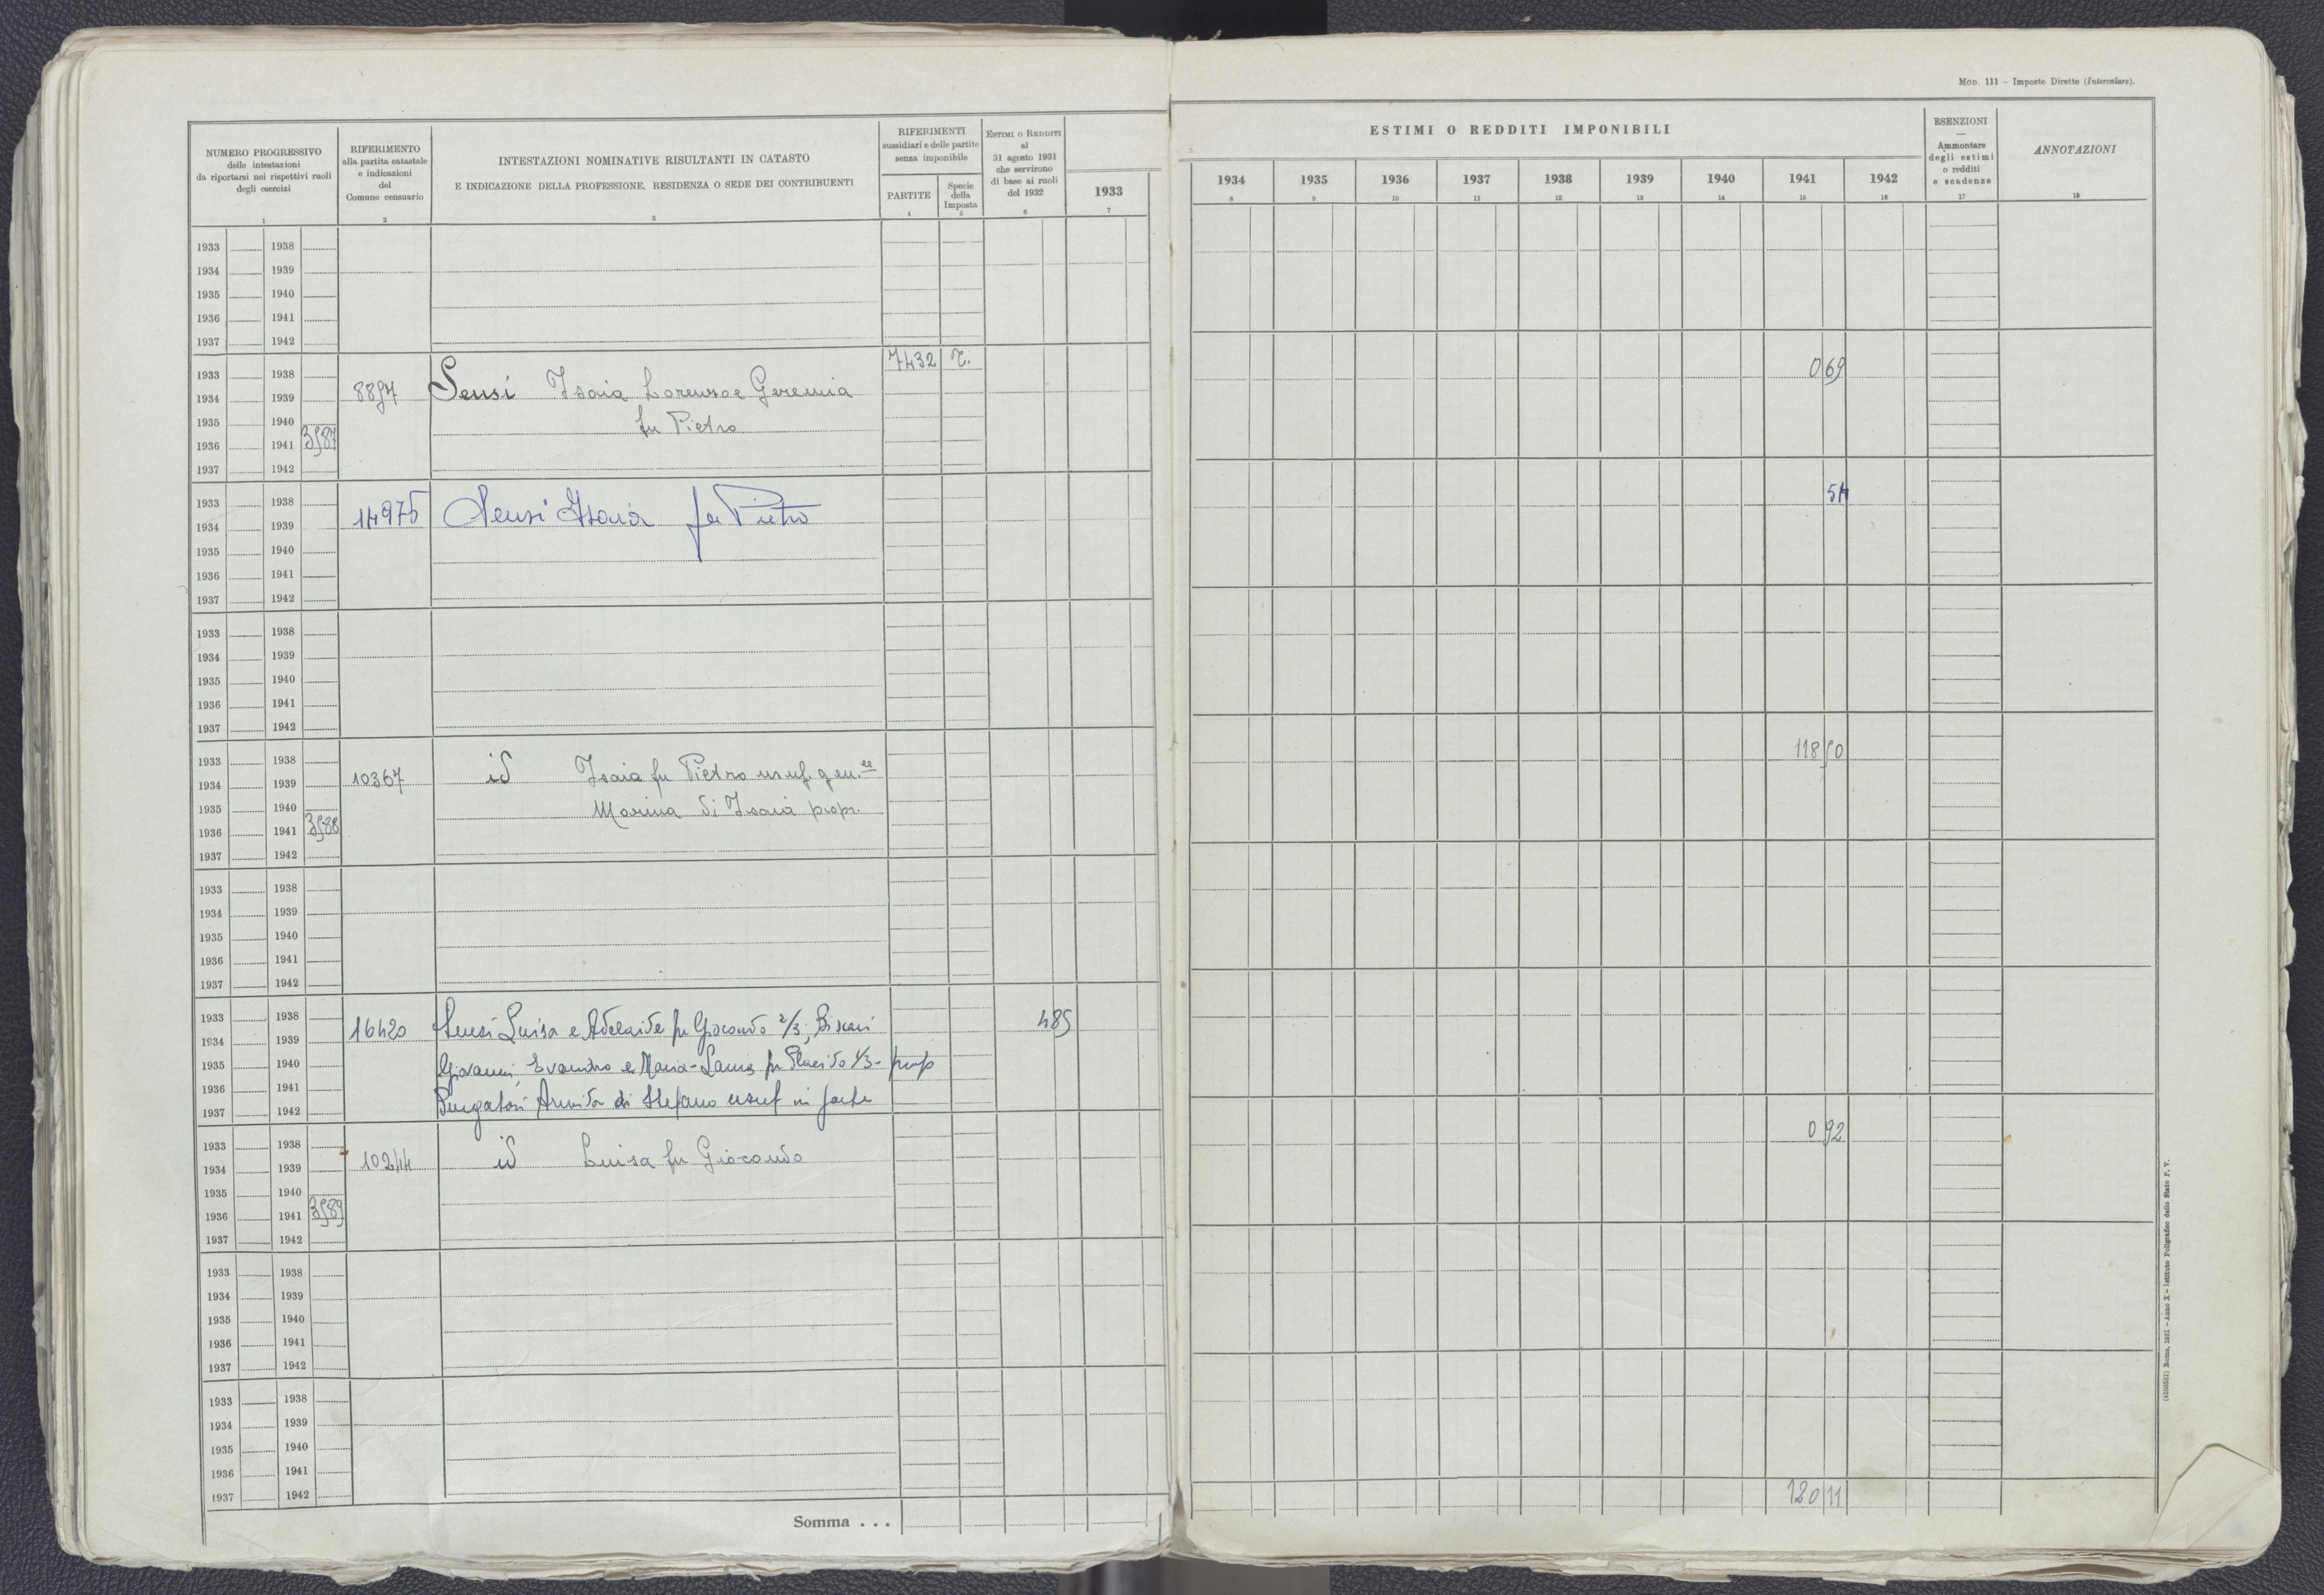 MOD. 111 - Imposte Dirette (Intercalare).
NUMERO PROGRESSIVO
delle intestazioni
da riportarsi nei rispettivi ruoli
degli esercizi
1
RIFERIMENTO
alla partita catastale
e indicazioni
del
Comune censuario
2
INTESTAZIONI NOMINATIVE RISULTANTI IN CATASTO
E INDICAZIONE DELLA PROFESSIONE, RESIDENZA O SEDE DEI CONTRIBUENTI
3
RIFERIMENTI
sussidiari e delle partite
senza imponibile
PARTITE
4
Specie
della
Imposta
5
ESTIMI O REDDITI
al
31 agosto 1931
che servirono
di base ai ruoli
del 1932
6
1933
7
ESTIMI O REDDITI IMPONIBILI
1934 1935 1936 1937 1938 1939 1940 1941 1942
8 9 10 11 12 13 14 15 16
ESENZIONI
—
Ammontare
degli estimi
o redditi
e scadenze
17
ANNOTAZIONI
18
1933 1938
1934 1939
1935 1940
1936 1941
1937 1942
7432
1933 1938 0 69
1934 1939 Sensi Isaia Lorenzo e Geremia
1935 1940 fu Pietro
1936 1941 3987
1937 1942
1933 1938 54
1934 1939 14975 Sensi Isaia fu Pietro
1935 1940
1936 1941
1937 1942
1933 1938
1934 1939
1935 1940
1936 1941
1937 1942
1933 1938 118 90
1934 1939 10367 id Isaia fu Pietro usuf. gen.le
1935 1940 Marina di Isaia propr.
1936 1941 3988
1937 1942
1933 1938
1934 1939
1935 1940
1936 1941
1937 1942
1933 1938 16420 Sensi Luisa e Adelaide fu Giocondo 2/3, 485
1934 1939
1935 1940 Giovanni, Evandro e Maria-Laura fu Placido 1/3- prop
1936 1941
1937 1942 di Stefano usuf in parte
1933 1938 0 92
1934 1939 10244 id Luisa fu Giocondo
1935 1940
1936 1941 3989
1937 1942
1933 1938
1934 1939
1935 1940
1936 1941
1937 1942
1933 1938
1934 1939
1935 1940
1936 1941
1937 1942
Somma . . . 120 11
Roma, 1931 - Anno X - Istituto Poligrafico dello Stato P. V.